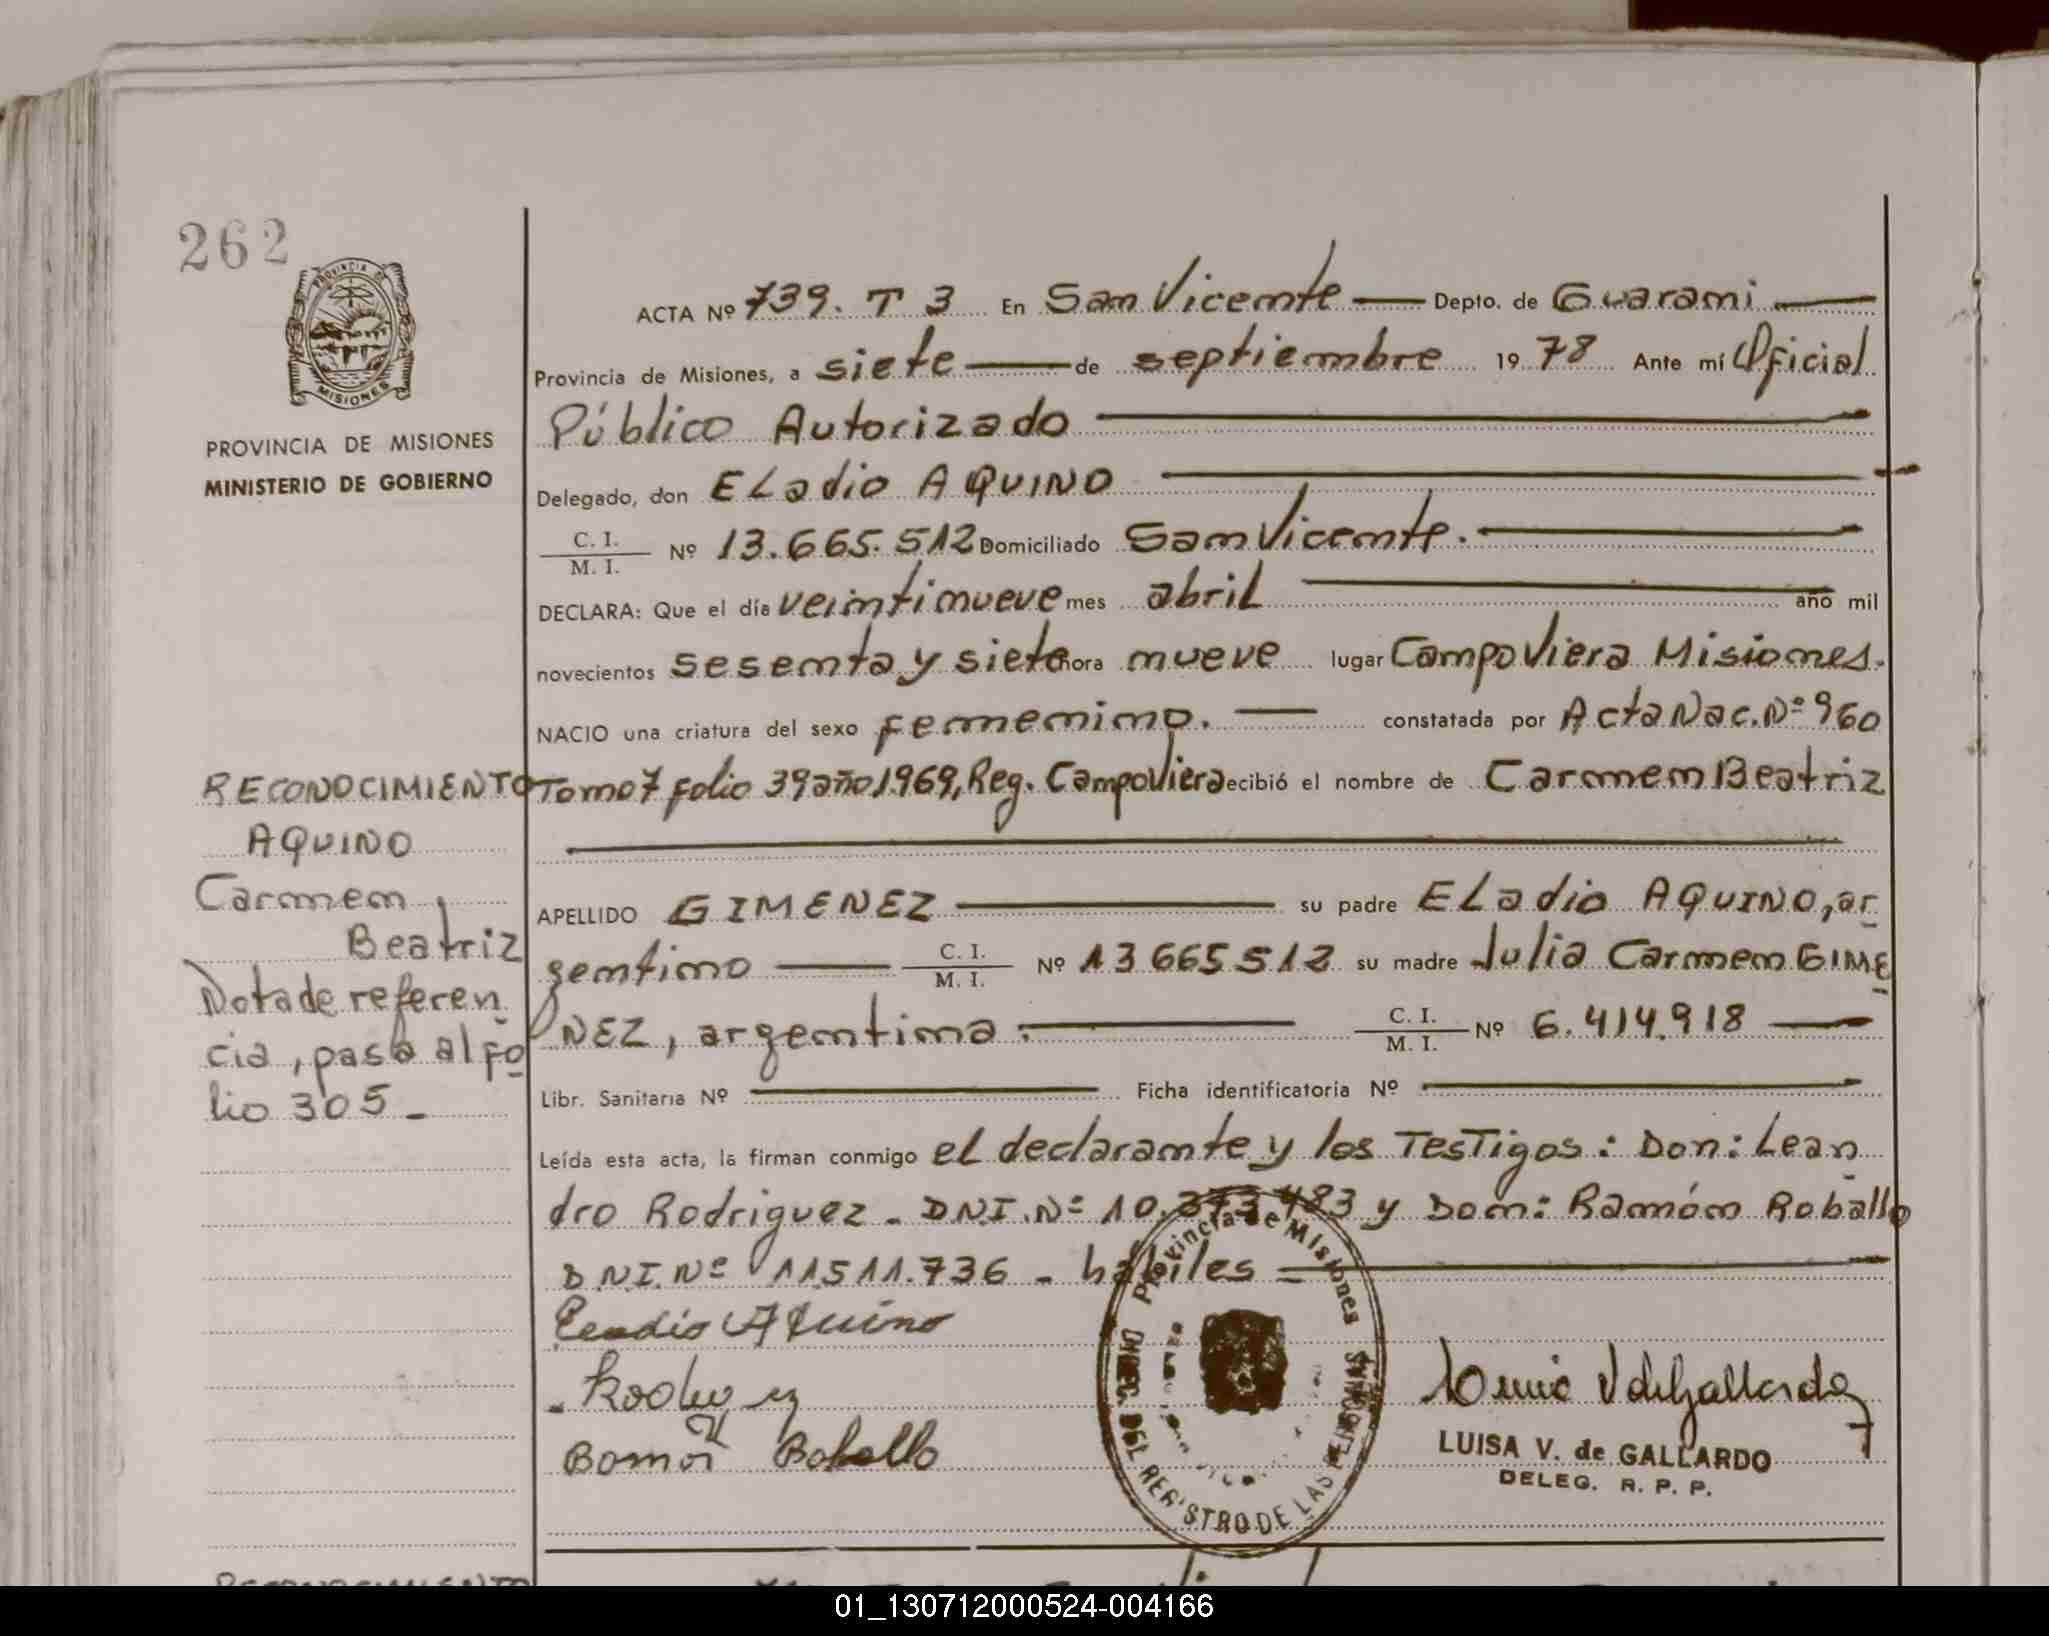 262
PROVINCIA DE
MISIONES
PROVINCIA DE MISIONES
MINISTERIO DE GOBIERNO
ACTA Nº 739. T 3 En San Vicente Depto. de Guarani
Provincia de Misiones, a siete de septiembre 19 78 Ante mí Oficial
Público Autorizado
Delegado, don ELadio AQUINO
C. I.
M. I. Nº 13.665.512 Domiciliado San Vicente.
DECLARA: Que el día veintinueve mes abril año mil
novecientos sesenta y siete hora nueve lugar Campo Viera Misiones.
NACIO una criatura del sexo femenino. constatada por Acta Nac. Nº 960
Tomo 7 folio 39 año 1.969, Reg. Campo Viera recibió el nombre de Carmen Beatriz
APELLIDO GIMENEZ su padre ELadio AQUINO, ar
gentino C. I.
M. I. Nº 13 665 512 su madre Julia Carmen GIME
NEZ, argentina. C. I.
M. I. Nº 6.414.918
Libr. Sanitaria Nº Ficha identificatoria Nº
Leída esta acta, la firman conmigo el declarante y los Testigos: Don: Lean
dro Rodriguez - DNI. Nº 10.373.483 y Don: Ramón Roballo
DNI. Nº 11511.736 - hábiles
RECONOCIMIENTO
AQUINO
Carmen
Beatriz
Nota de referen
cia, pasa al fo
lio 305 -
Eladio Aquino
Provincia de Misiones
DIREC. DEL REGISTRO DE LAS PERSONAS
LUISA V. de GALLARDO
DELEG. R. P. P.
RECONOCIMIENTO
01_130712000524-004166